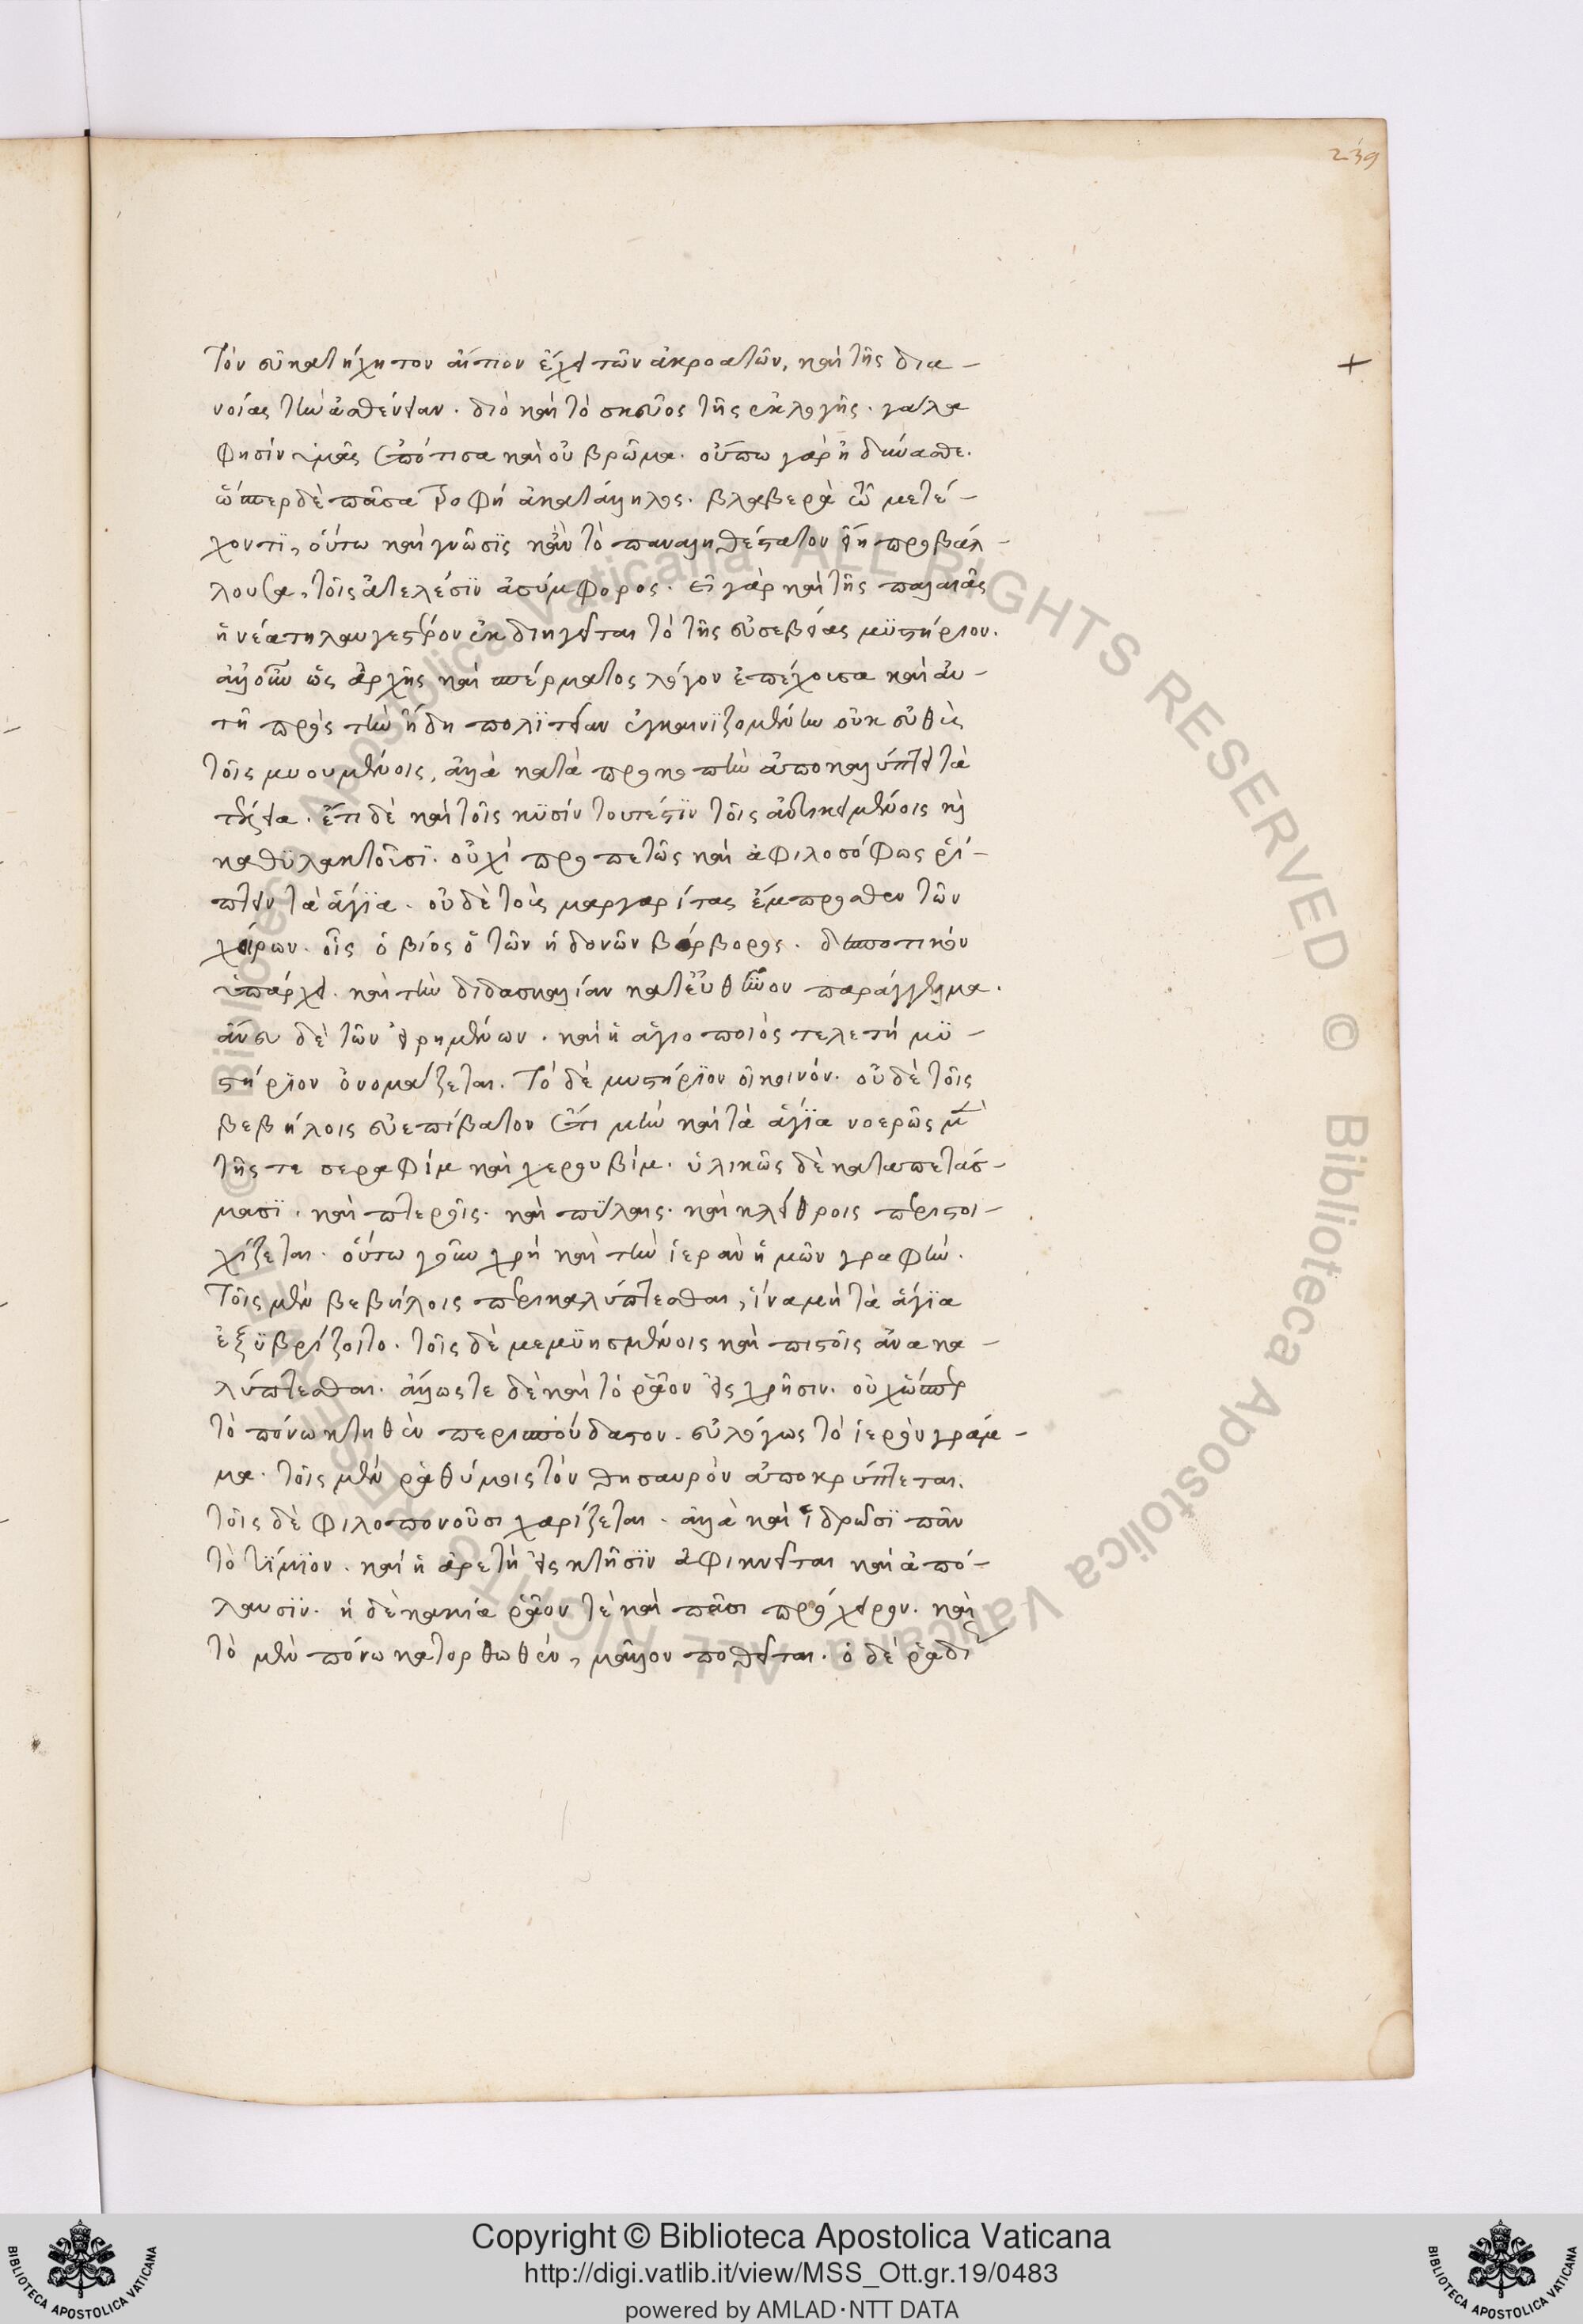 239
τὸν εὐκατήχητον αἴτιον ἔχει τῶν ἀκροατῶν, καὶ τῆς δια-
νοίας τὴν ἀσθένειαν. διὸ καὶ τὸ σκεῦος τῆς ἐκλογῆς. γάλα
φησὶν ὑμᾶς ἐπότισα καὶ οὐ βρῶμα. οὔπω γὰρ ἠδύνασθε.
ὥσπερ δὲ πᾶσα τροφὴ ἀκατάλληλος. βλαβερὰ τῷ μετέ-
χοντι, οὕτω καὶ γνῶσις κἂν τὸ παναληθέστατον εἴη προβάλ-
λουσα, τοῖς ἀτελέσιν ἀσύμφορος. εἰ γὰρ καὶ τῆς παλαιᾶς
ἡ νέα τηλαυγέστερον ἐκδιηγεῖται τὸ τῆς εὐσεβείας μυστήριον.
ἀλλ' οὖν ὡς ἀρχῆς καὶ σπέρματος λόγον ἐπέχουσα καὶ αὐ-
τὴ πρὸς τὴν ἤδη πολιτείαν ἐγκαινιζομένην οὐκ εὐθὺς
τοῖς μυουμένοις, ἀλλὰ κατὰ προκοπὴν ἀποκαλύπτει τὰ
θεῖα. ἔτι δὲ καὶ τοῖς κυσὶν τουτέστιν τοῖς ἀντικειμένοις καὶ
καθυλακτοῦσι. οὐχὶ προπετῶς καὶ ἀφιλοσόφως ῥί-
πτειν τὰ ἅγια. οὐδὲ τοὺς μαργαρίτας ἔμπροσθεν τῶν
χοίρων. οἷς ὁ βίος ὁ τῶν ἡδονῶν βόρβορος. δεσποτικὸν
ὑπάρχει. καὶ τὴν διδασκαλίαν κατευθῦνον παράγγελμα.
ἄνευ δὲ τῶν εἰρημένων. καὶ ἡ ἁγιοποιὸς τελετὴ μυ-
στήριον ὀνομάζεται. Τὸ δὲ μυστήριον οὐ κοινόν. οὐδὲ τοῖς
βεβήλοις εὐεπίβατον ἔτι μὴν καὶ τὰ ἅγια νοερῶς μετὰ
τῆς τε σεραφὶμ καὶ χερουβίμ. ὑλικῶς δὲ καταπετάσ-
μασι. καὶ πτεροῖς. καὶ πύλαις. καὶ κλείθροις περιστοι-
χίζεται. οὕτω γοῦν χρὴ καὶ τὴν ἱερὰν ἡμῶν γραφήν.
Τοῖς μὲν βεβήλοις περικαλύπτεσθαι, ἵνα μὴ τὰ ἅγια
ἐξυβρίζοιτο. τοῖς δὲ μεμυημένοις καὶ πιστοῖς ἀνακα-
λύπτεσθαι. ἄλλως τε δὲ καὶ τὸ ῥᾷον εἰς χρῆσιν. οὐχ ὥσπερ
τὸ πόνῳ κτηθὲν περισπούδαστον. εὐλόγως τὸ ἱερὸν γράμ-
μα. τοῖς μὲν ῥᾳθύμοις τὸν θησαυρὸν ἀποκρύπτεται.
τοῖς δὲ φιλοπονοῦσι χαρίζεται. ἀλλὰ καὶ ἱδρῶσι πᾶν
τὸ τίμιον. καὶ ἡ ἀρετὴ εἰς κτῆσιν ἀφικνεῖται καὶ ἀπό-
λαυσιν. ἡ δὲ κακία ῥᾷόν τε καὶ πᾶσι πρόχειρον. καὶ
τὸ μὲν πόνῳ κατορθωθέν, μᾶλλον ποθεῖται. ὁ δὲ ῥᾳδί
Copyright © Biblioteca Apostolica Vaticana
http://digi.vatlib.it/view/MSS_Ott.gr.19/0483
powered by AMLAD·NTT DATA
BIBLIOTECA APOSTOLICA VATICANA
BIBLIOTECA APOSTOLICA VATICANA
© Biblioteca Apostolica Vaticana ALL RIGHTS RESERVED © Biblioteca Apostolica Vaticana ALL RIGHTS RESERVED